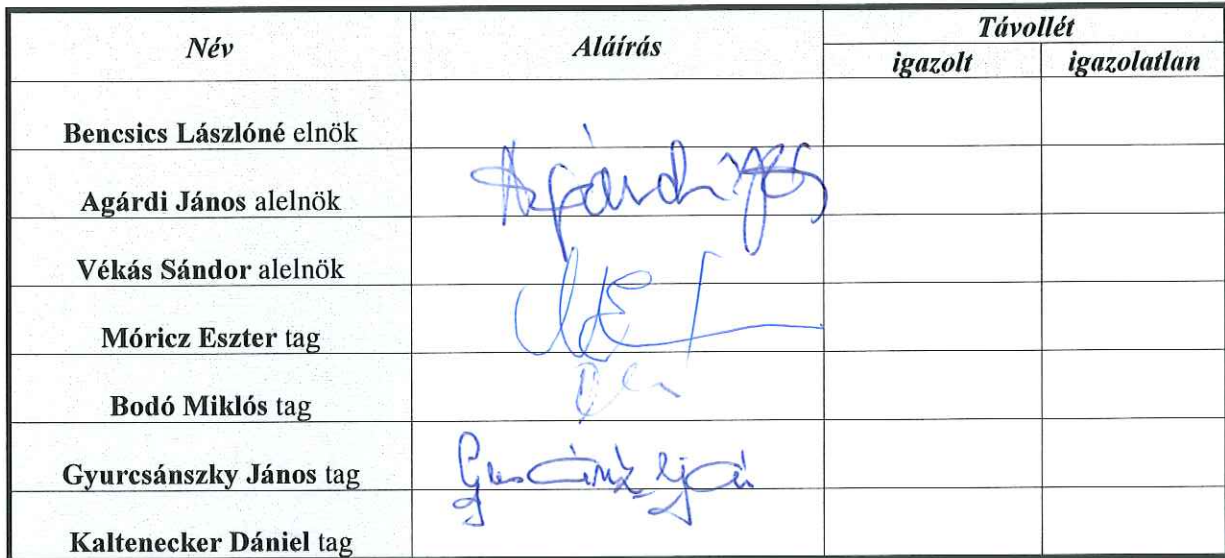 Név Aláírás Távollét
igazolt igazolatlan
Bencsics Lászlóné elnök
Agárdi János alelnök
Vékás Sándor alelnök
Móricz Eszter tag
Bodó Miklós tag
Gyurcsánszky János tag
Kaltenecker Dániel tag